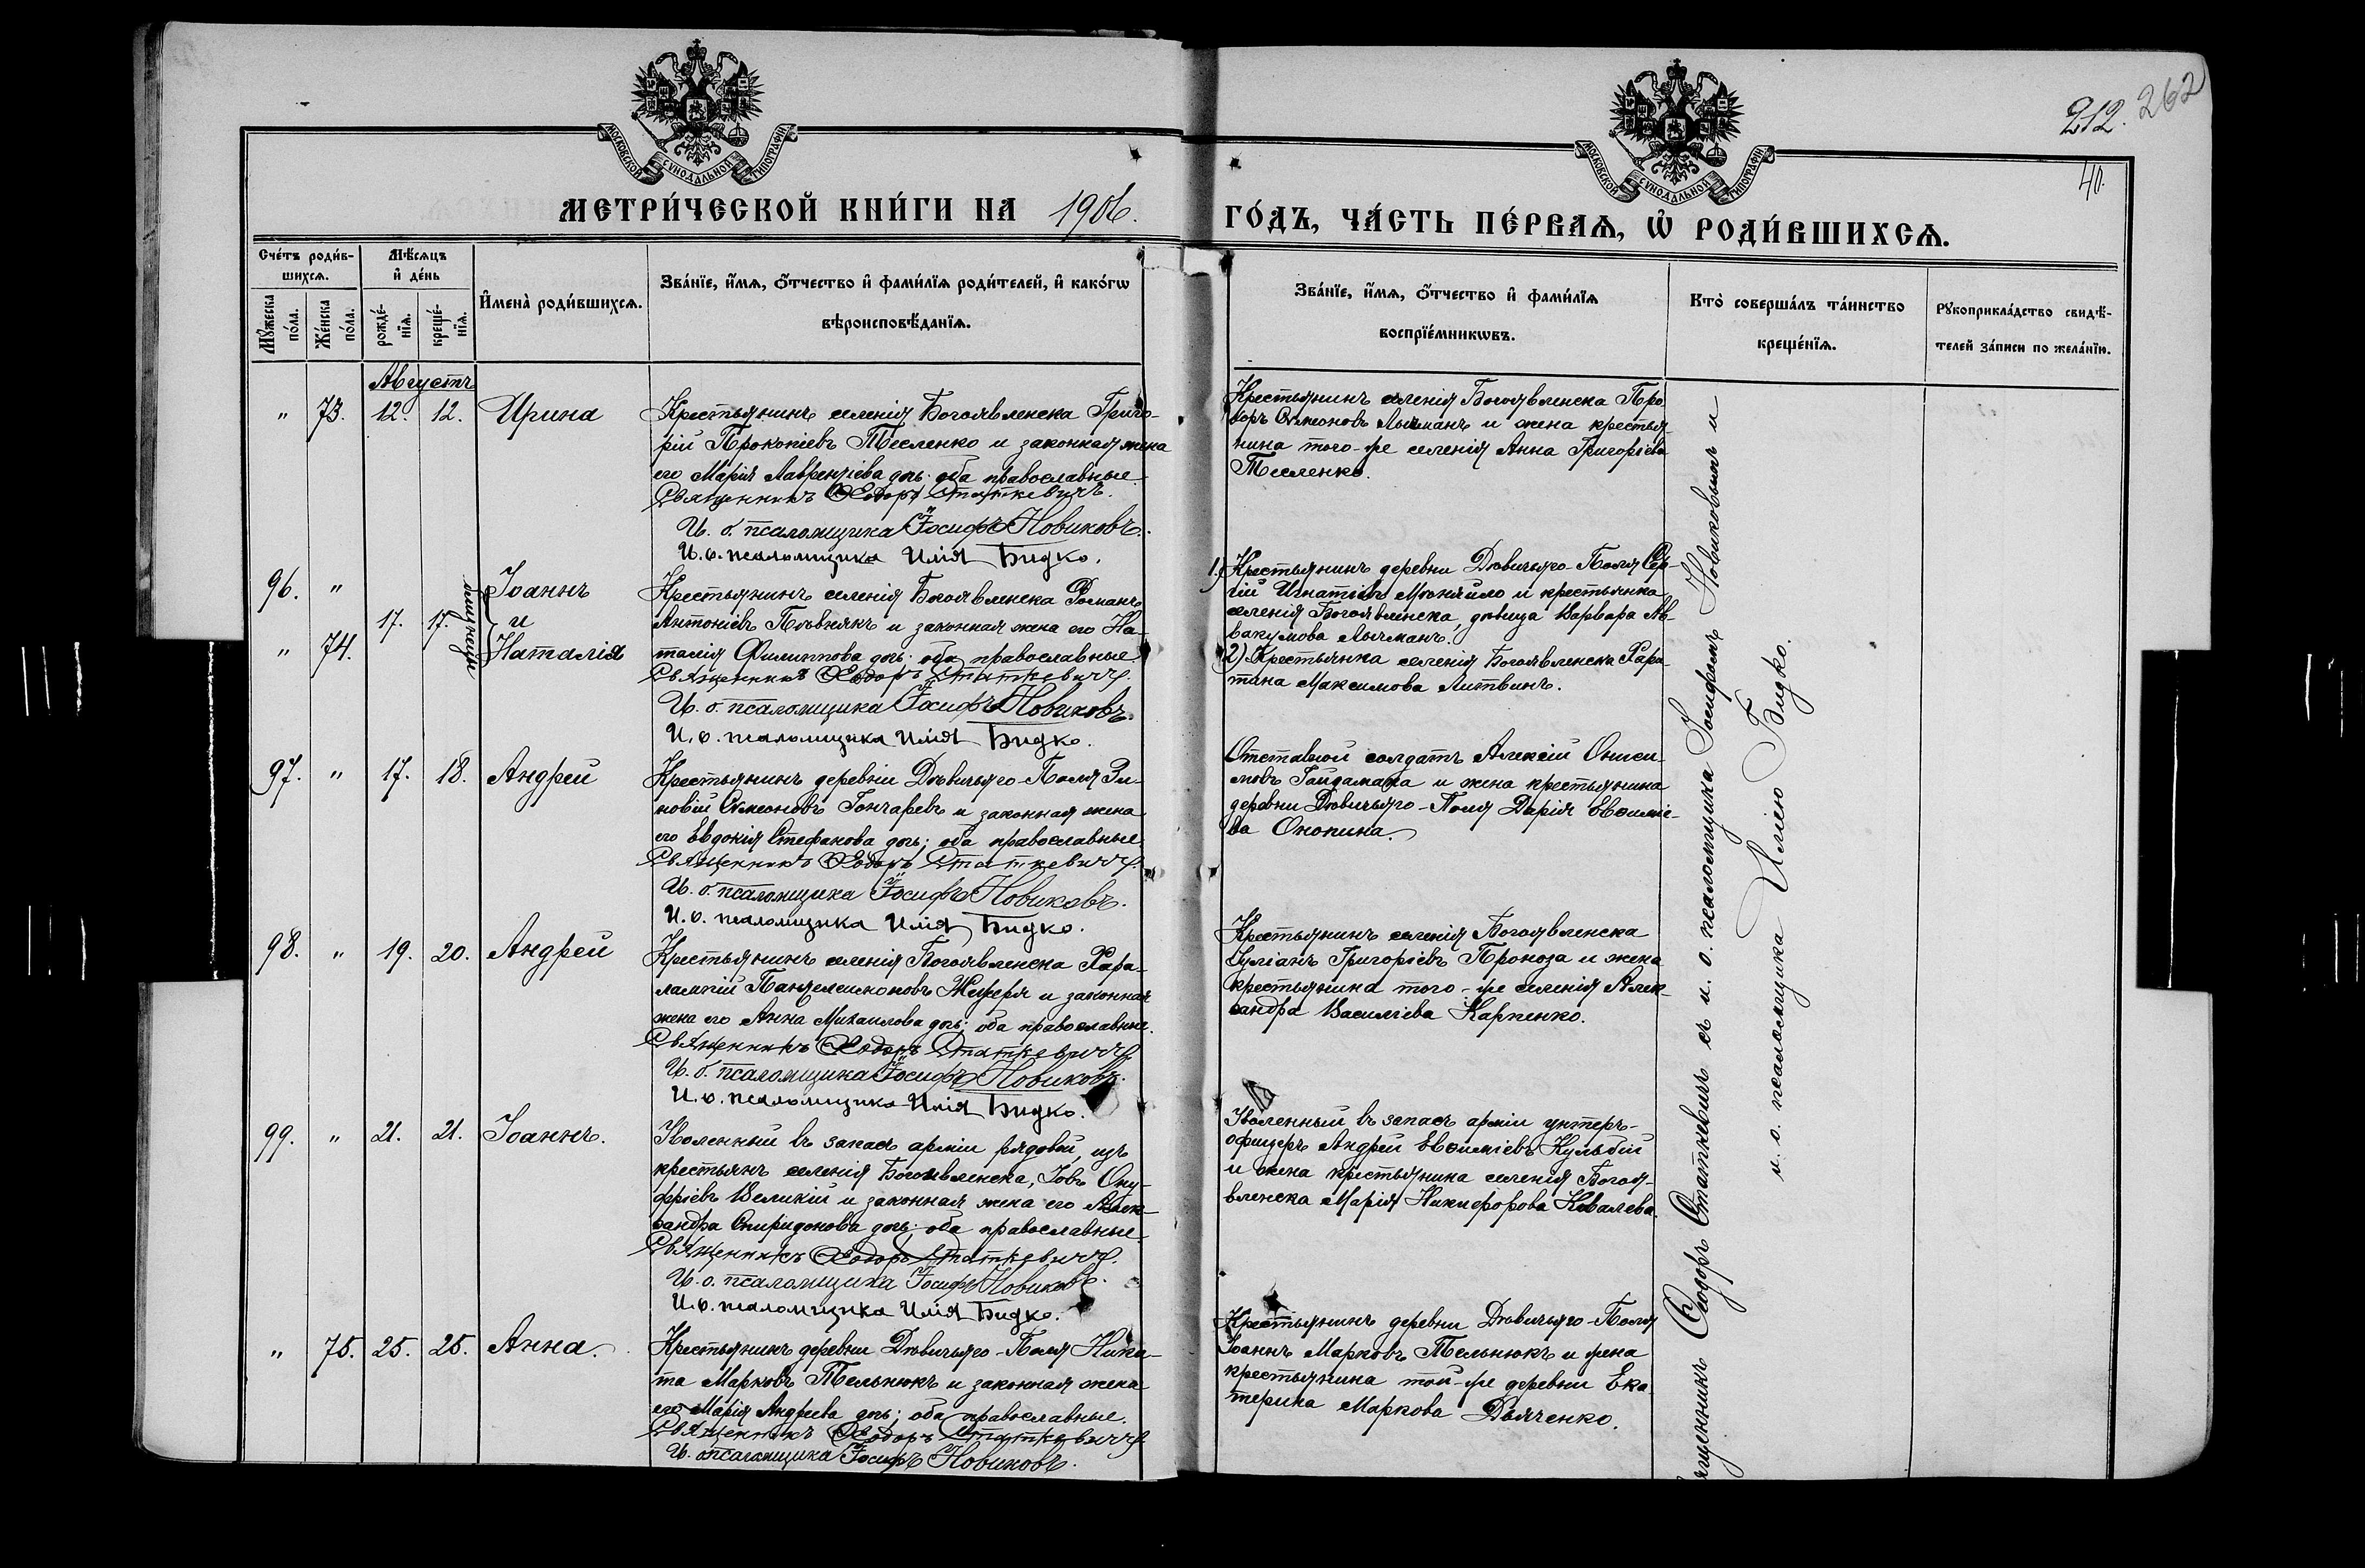 МОСКОВСКОЙ СѴНОДАЛЬНОЙ ТИПОГРАФІИ
МОСКОВСКОЙ СѴНОДАЛЬНОЙ ТИПОГРАФІИ
212. 262
40.
МЕТРИ́ЧЕСКОЙ КНИ́ГИ НА 1906.
ГО́ДЪ, ЧА́СТЬ ПЕ́РВАѦ, Ѡ҆ РОДИ́ВШИХСѦ.
Сче́тъ роди́в-
шихсѧ.
Мꙋ́жеска
по́ла.
Же́нска
по́ла.
Мѣ́сѧцъ
и҆ де́нь
рожде́-
нїѧ.
креще́-
нїѧ.
И҆мена̀ роди́вшихсѧ.
Зва́нїе, и҆́мѧ, ѻ҆́тчество и҆ фами́лїѧ роди́телей, и҆ како́гѡ
вѣроисповѣ́данїѧ.
Зва́нїе, и҆́мѧ, ѻ҆́тчество и҆ фами́лїѧ
воспрїе́мникѡвъ.
Кто̀ соверша́лъ та́инство
креще́нїѧ.
Рꙋкоприкла́дство свидѣ́-
телей за́писи по жела́нїю.
Августъ
" 73. 12. 12. Ирина
Крестьянинъ селенія Богоявленска Григо-
рій Прокопіевъ Тесленко и законная жена
его Марія Лаврентіева дочь; оба православные.
Священникъ Ѳеодоръ Статкевичъ.
И. о. псаломщика Іосифъ Новиковъ.
И. о. псаломщика Илія Бидко.
Крестьянинъ селенія Богоявленска Про-
воръ Симеоновъ Лычманъ и жена крестья-
нина того-же селенія Анна Григоріева
Тесленко.
96. " Іоаннъ
17. 17. близнецы и
" 74. Наталія
Крестьянинъ селенія Богоявленска Романъ
Антоніевъ и законная жена его На-
талія Филиппова дочь; оба православные.
Священникъ Ѳеодоръ Статкевичъ.
И. о. псаломщика Іосифъ Новиковъ.
И. о. псаломщика Илія Бидко.
1) Крестьянинъ деревни Дѣвичьяго-Поля Сер-
гій Игнатіевъ и крестьянка
селенія Богоявленска, дѣвица Варвара Ав-
вакумова Лычманъ.
2) Крестьянка селенія Богоявленска Хари-
тина Максимова Литвинъ.
97. " 17. 18. Андрей
Крестьянинъ деревни Дѣвичьяго-Поля Зи-
новій Симеоновъ Гончаревъ и законная жена
его Евдокія Стефанова дочь; оба православные.
Священникъ Ѳеодоръ Статкевичъ.
И. о. псаломщика Іосифъ Новиковъ.
И. о. псаломщика Илія Бидко.
Отставной солдатъ Алексій Ониси-
мовъ Гайдамака и жена крестьянина
деревни Дѣвичьяго-Поля Дарія Евѳиміе-
ва Онопина.
98. " 19. 20. Андрей
Крестьянинъ селенія Богоявленска Хара-
лампій Пантелеимоновъ и законная
жена его Анна Михаилова дочь; оба православные.
Священникъ Ѳеодоръ Статкевичъ.
И. о. псаломщика Іосифъ Новиковъ.
И. о. псаломщика Илія Бидко.
Крестьянинъ селенія Богоявленска
Іуліанъ Григоріевъ Проноза и жена
крестьянина того-же селенія Алек-
сандра Василіева Карпенко.
99. " 21. 21. Іоаннъ.
Уволенный въ запасъ арміи рядовой, изъ
крестьянъ селенія Богоявленска, Іовъ Ону-
фріевъ Великій и законная жена его Алек-
сандра Спиридонова дочь; оба православные.
Священникъ Ѳеодоръ Статкевичъ.
И. о. псаломщика Іосифъ Новиковъ.
И. о. псаломщика Илія Бидко.
Уволенный въ запасъ арміи унтеръ-
офицеръ Андрей Евѳиміевъ Кульбій
и жена крестьянина селенія Богоя-
вленска Марія Никифорова Ковалева.
" 75. 25. 25. Анна.
Крестьянинъ деревни Дѣвичьяго-Поля Ники-
та Марковъ Тельнюкъ и законная жена
его Марія Андреева дочь; оба православные.
Священникъ Ѳеодоръ Статкевичъ.
И. о. псаломщика Іосифъ Новиковъ.
Крестьянинъ деревни Дѣвичьяго-Поля
Іоаннъ Марковъ Тельнюкъ и жена
крестьянина той-же деревни Ека-
терина Маркова Дьяченко.
Священникъ Ѳеодоръ Статкевичъ съ и. о. псаломщика Іосифомъ Новиковымъ и
и. о. псаломщика Иліею Бидко.